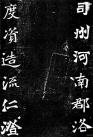 司州河南郡洛
度資造流仁澄